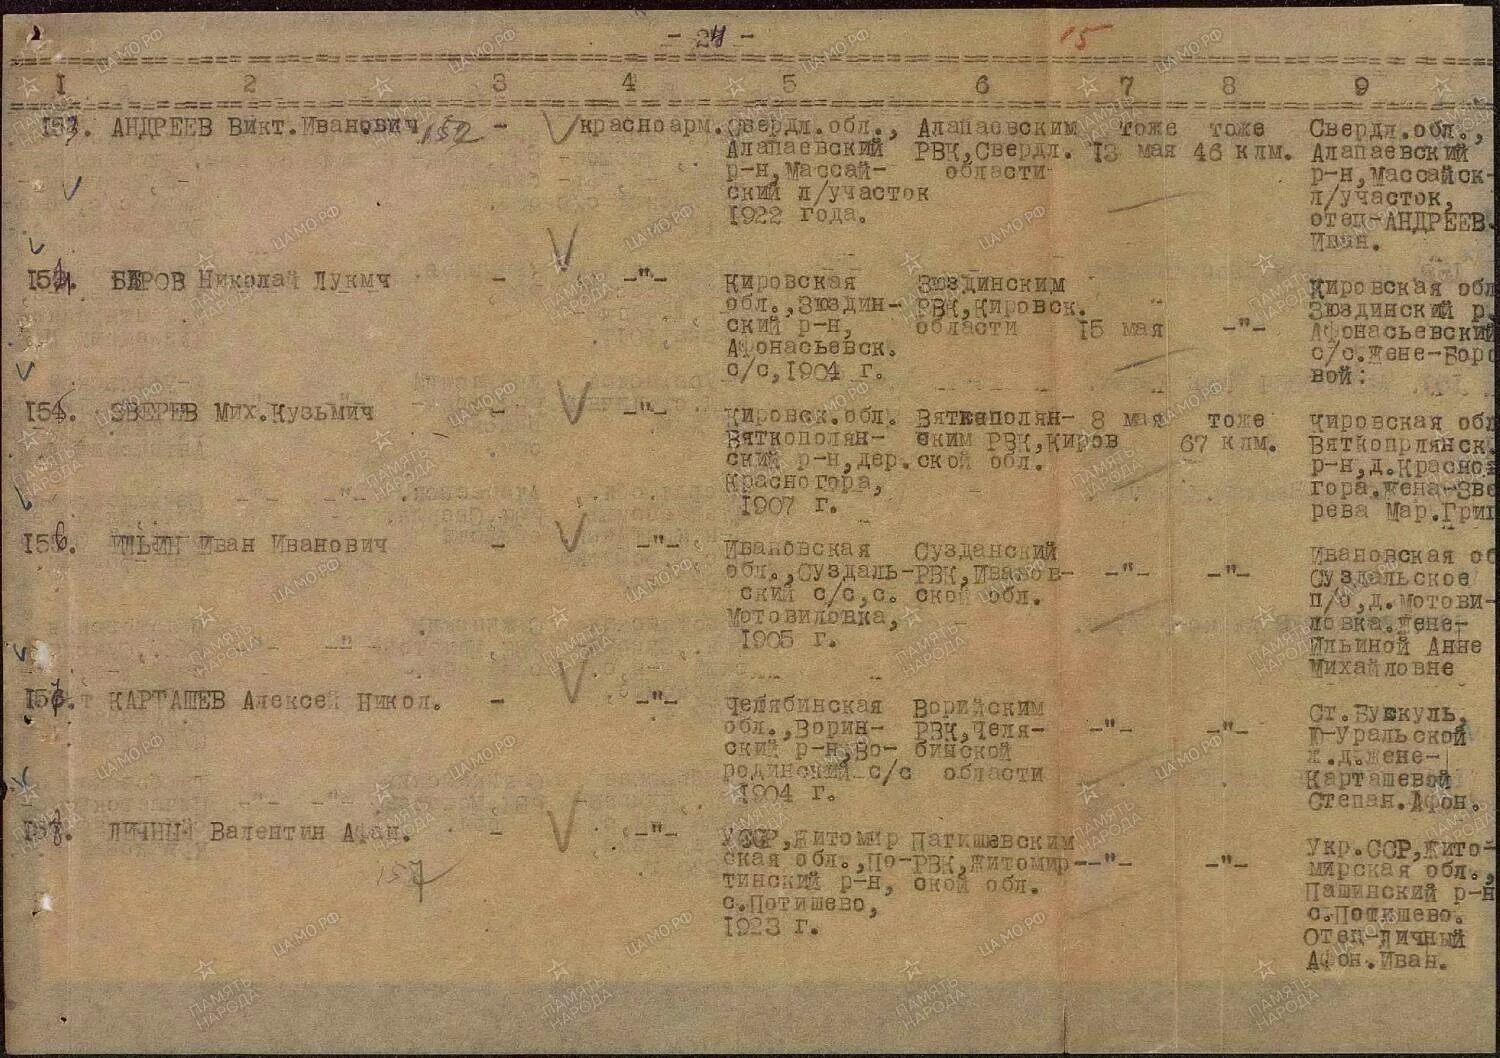 - 24 - 15
1 2 3 4 5 6 7 8 9
АНДРЕЕВ Викт.Иванович 152 - красноарм.
Свердл.обл.,
Алапаевский
р-н,Массай-
ский л/участок
1922 года.
Алапаевским
РВК,Свердл.
области
тоже
13 мая
тоже
46 клм.
Свердл.обл.,
Алапаевский
р-н,Массайск-
л/участок,
отец-АНДРЕЕВ.
Иван.
Николай Лукмч - -"-
Кировская
обл.,Зюздин-
ский р-н,
Афонасьевск.
с/с,1904 г.
Зюздинским
РВК,Кировск.
области
15 мая
-"-
Кировская обл
Зюздинский р
Афонасьевский
с/с.Жене-Боро
вой:
ЗВЕРЕВ Мих.Кузьмич - -"-
Кировск.обл.
Вяткополян-
ский р-н,дер.
Красногора,
1907 г.
Вяткополян-
ским РВК,Киров
ской обл.
8 мая
тоже
67 клм.
Кировская обл
Вяткопрлянск
р-н,д.Красно
гора.Жена-Зве
рева Мар.Григ
ИЛЬИН Иван Иванович - -"-
Ивановская
обл.,Суздаль-
ский с/с,с.
Мотовиловка,
1905 г.
Сузданский
РВК,Иванов-
ской обл.
-"-
-"-
Ивановская об
Суздальское
п/о,д.Мотови-
ловка.Жене-
Ильиной Анне
Михайловне
КАРТАШЕВ Алексей Никол. - -"-
Челябинская
обл.,Ворин-
ский р-н,Во-
родинский с/с
1904 г.
Ворийским
РВК,Челя-
бинской
области
-"-
-"-
Ст.Бускуль,
Ю-Уральской
ж.д.жене-
Карташевой
Степан.Афон.
ЛИЧНЫЙ Валентин Афан. - -"-
157
УССР,Житомир
ская обл.,По-
тинский р-н,
с.Потишево,
1923 г.
Патишевским
РВК,Житомир-
ской обл.
-"-
-"-
Укр.ССР,Жито-
мирская обл.,
Пашинский р-н
с.Потишево.
Отец-Личный
Афон.Иван.
ПАМЯТЬ НАРОДА
ЦАМО.РФ